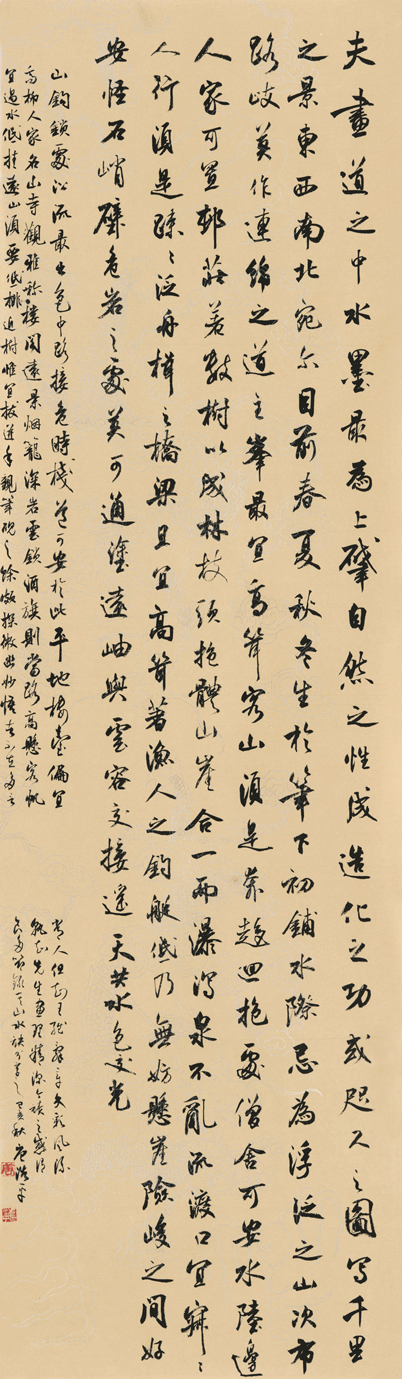 夫畫道之中水墨最為上肇自然之性成造化之功或咫尺之圖寫千里
之景東西南北宛尔目前春夏秋冬生於筆下初鋪水際忌為浮泛之山次布
路歧莫作連綿之道主峯最宜高聳客山須是奔趨迴抱處僧舍可安水陸邊
人家可置邨莊著數樹以成林枝頭抱體山崖合一而瀑瀉泉不亂流渡口宜寂〻
人行須是疏〻泛舟楫之橋梁且宜高聳著漁人之釣艇低乃無妨懸崖險峻之間好
安怪石峭壁危岩之處莫可通塗遠岫與雲容交接遥天共水色交光
山鈎鎖處沿流最出其中路接危時棧道可安於此平地樓臺偏宜
高柳人家名山寺觀雅稱樓閣遠景烟籠深岩雲鎖酒旗則當路高懸客帆
宜遇水低挂遠山須要低排近樹惟宜拔迸手親筆硯之餘探微幽妙悟者不在多言
人但知王
先生畫理精深
山水訣
秋